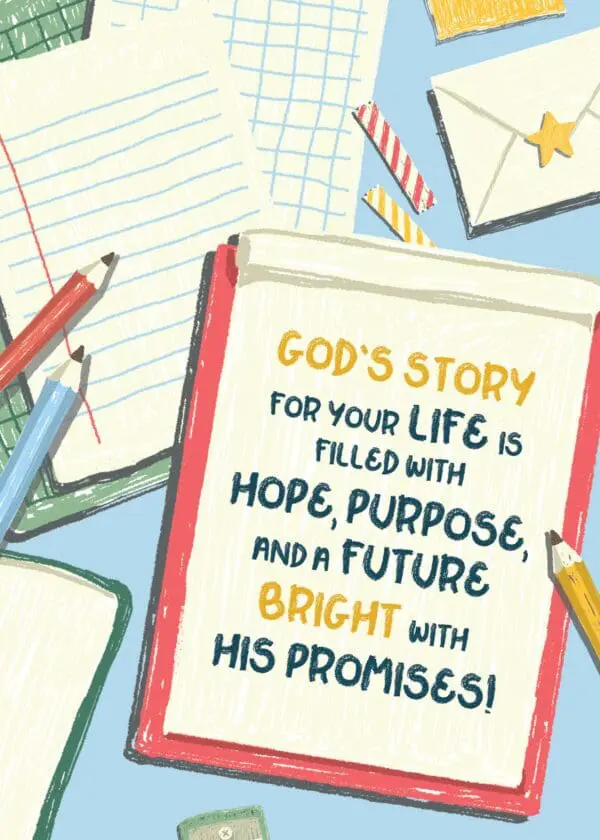 GOD'S STORY
FOR YOUR LIFE IS
FILLED WITH
HOPE, PURPOSE,
AND A FUTURE
BRIGHT WITH
HIS PROMISES!